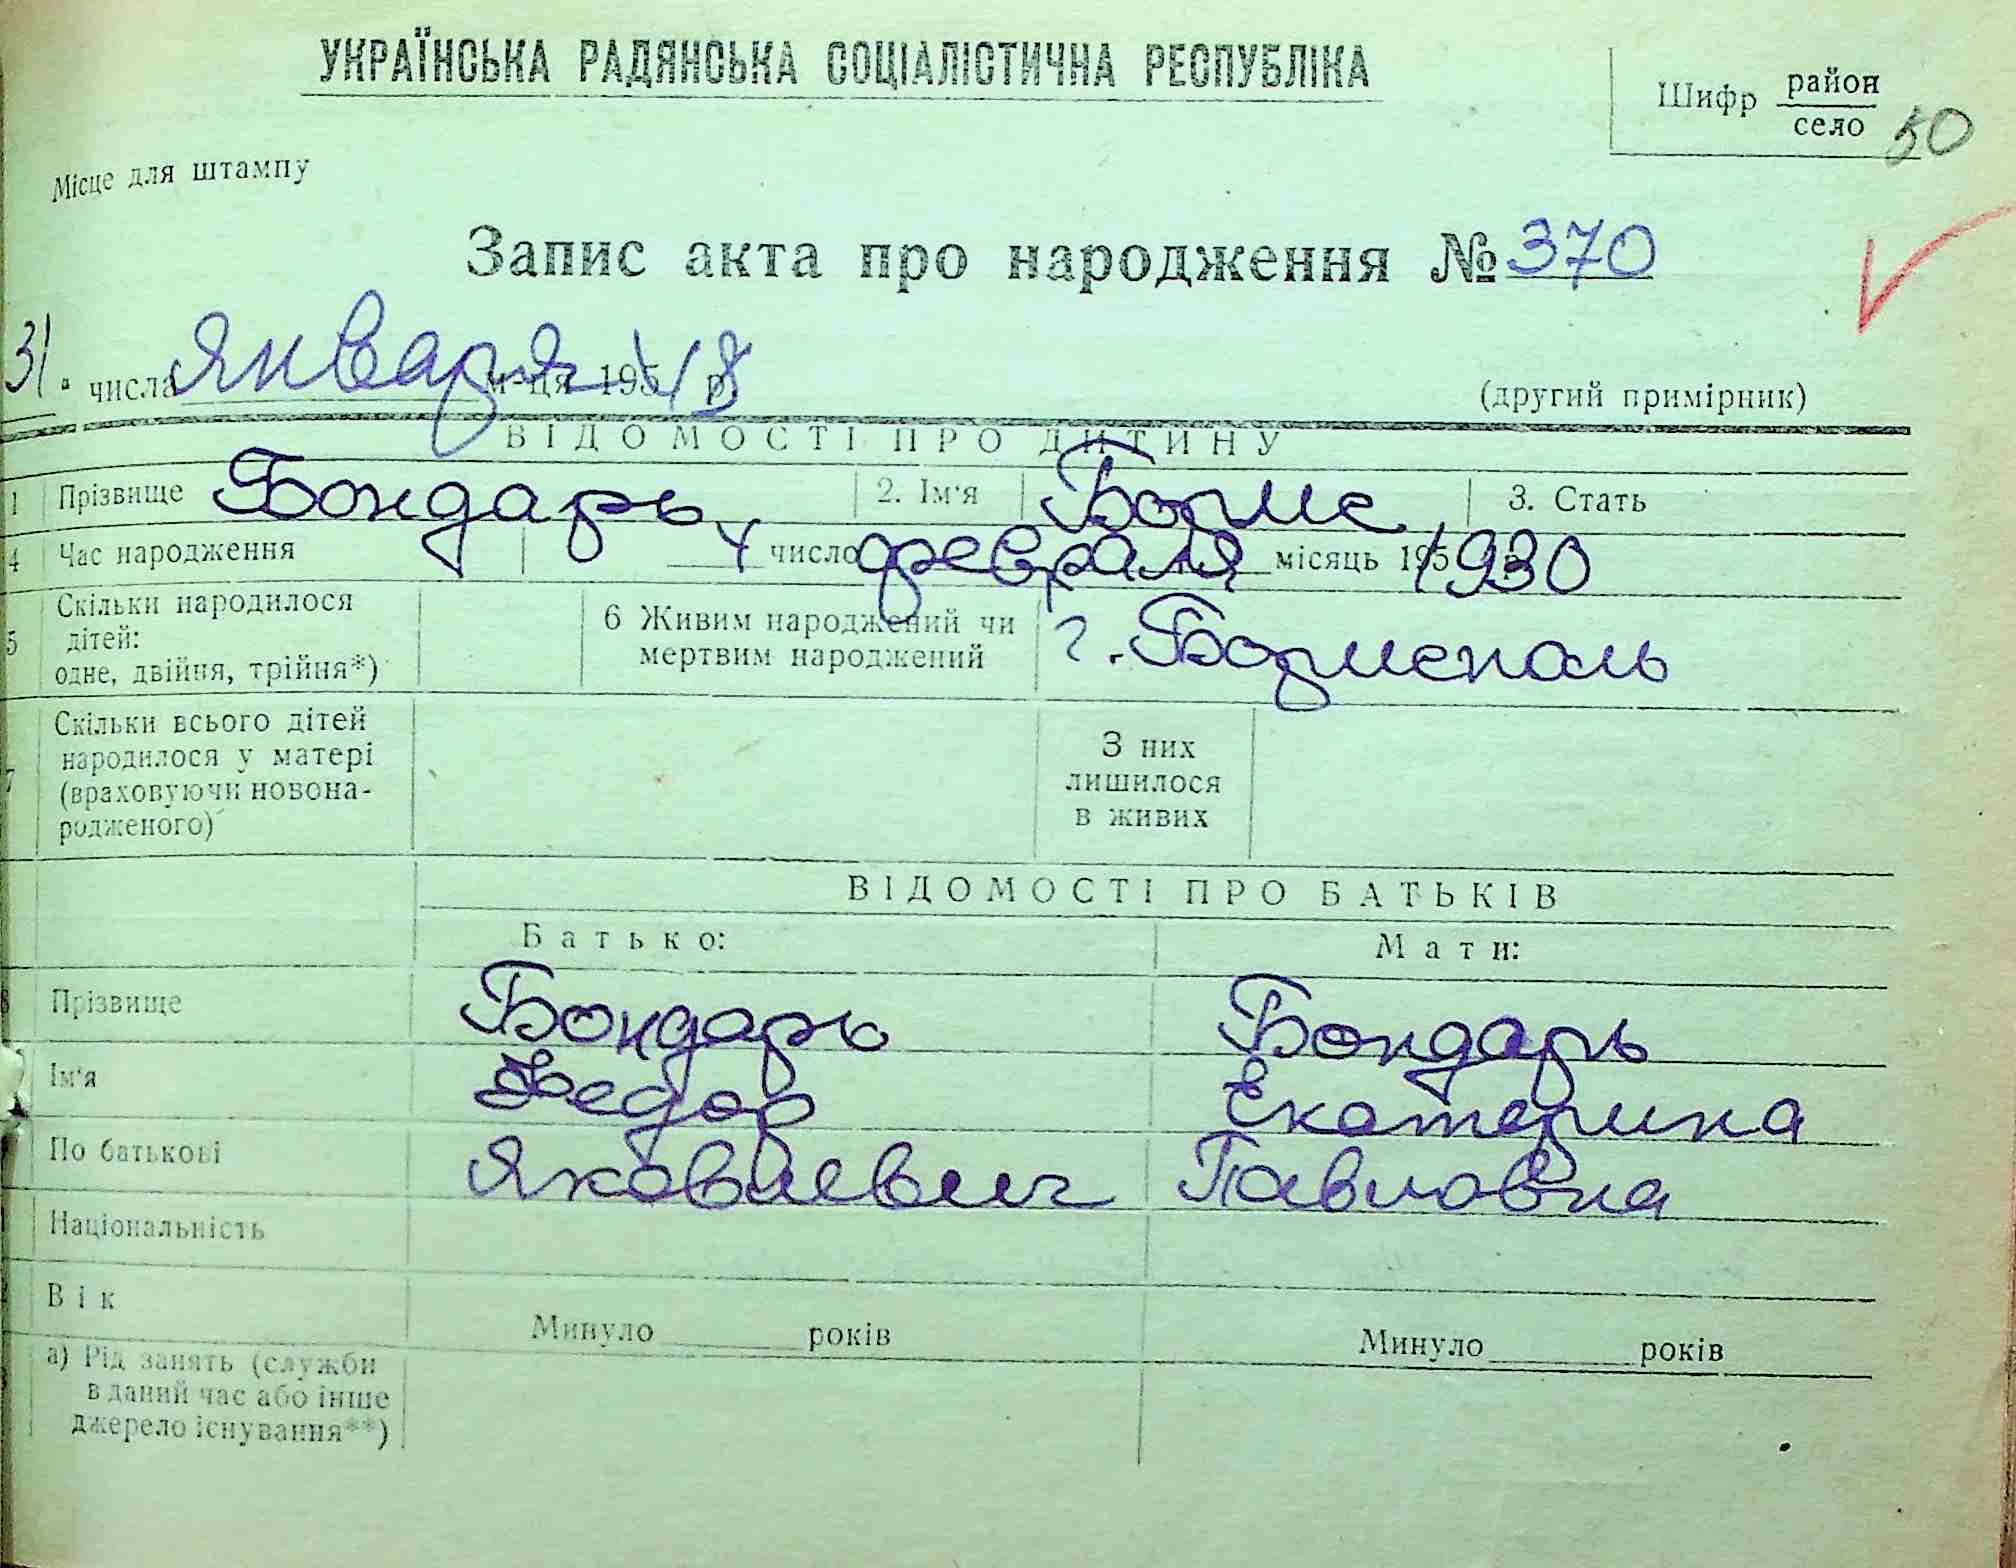 УКРАЇНСЬКА РАДЯНСЬКА СОЦІАЛІСТИЧНА РЕСПУБЛІКА
Шифр район
село 50
Місце для штампу
Запис акта про народження № 370
31. числа января м-ця 195 р.
(другий примірник)
ВІДОМОСТІ ПРО ДИТИНУ
1 Прізвище Бондарь 2. Ім'я Борис 3. Стать
4 Час народження 4 число февраля місяць 195 1930
5 Скільки народилося дітей: одне, двійня, трійня*) 6 Живим народжений чи мертвим народжений г. Борисполь
7 Скільки всього дітей народилося у матері (враховуючи новона-родженого) З них лишилося в живих
ВІДОМОСТІ ПРО БАТЬКІВ
Батько: Мати:
8 Прізвище Бондарь Бондарь
Ім'я Федор Екатерина
По батькові Яковлевич Павловна
Національність
Вік Минуло років Минуло років
а) Рід занять (служби в даний час або інше джерело існування**)